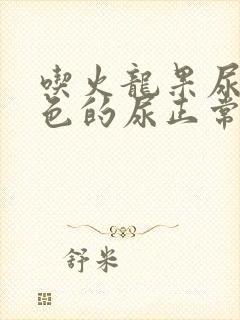 喫火龍果尿
色的尿正常
舒米